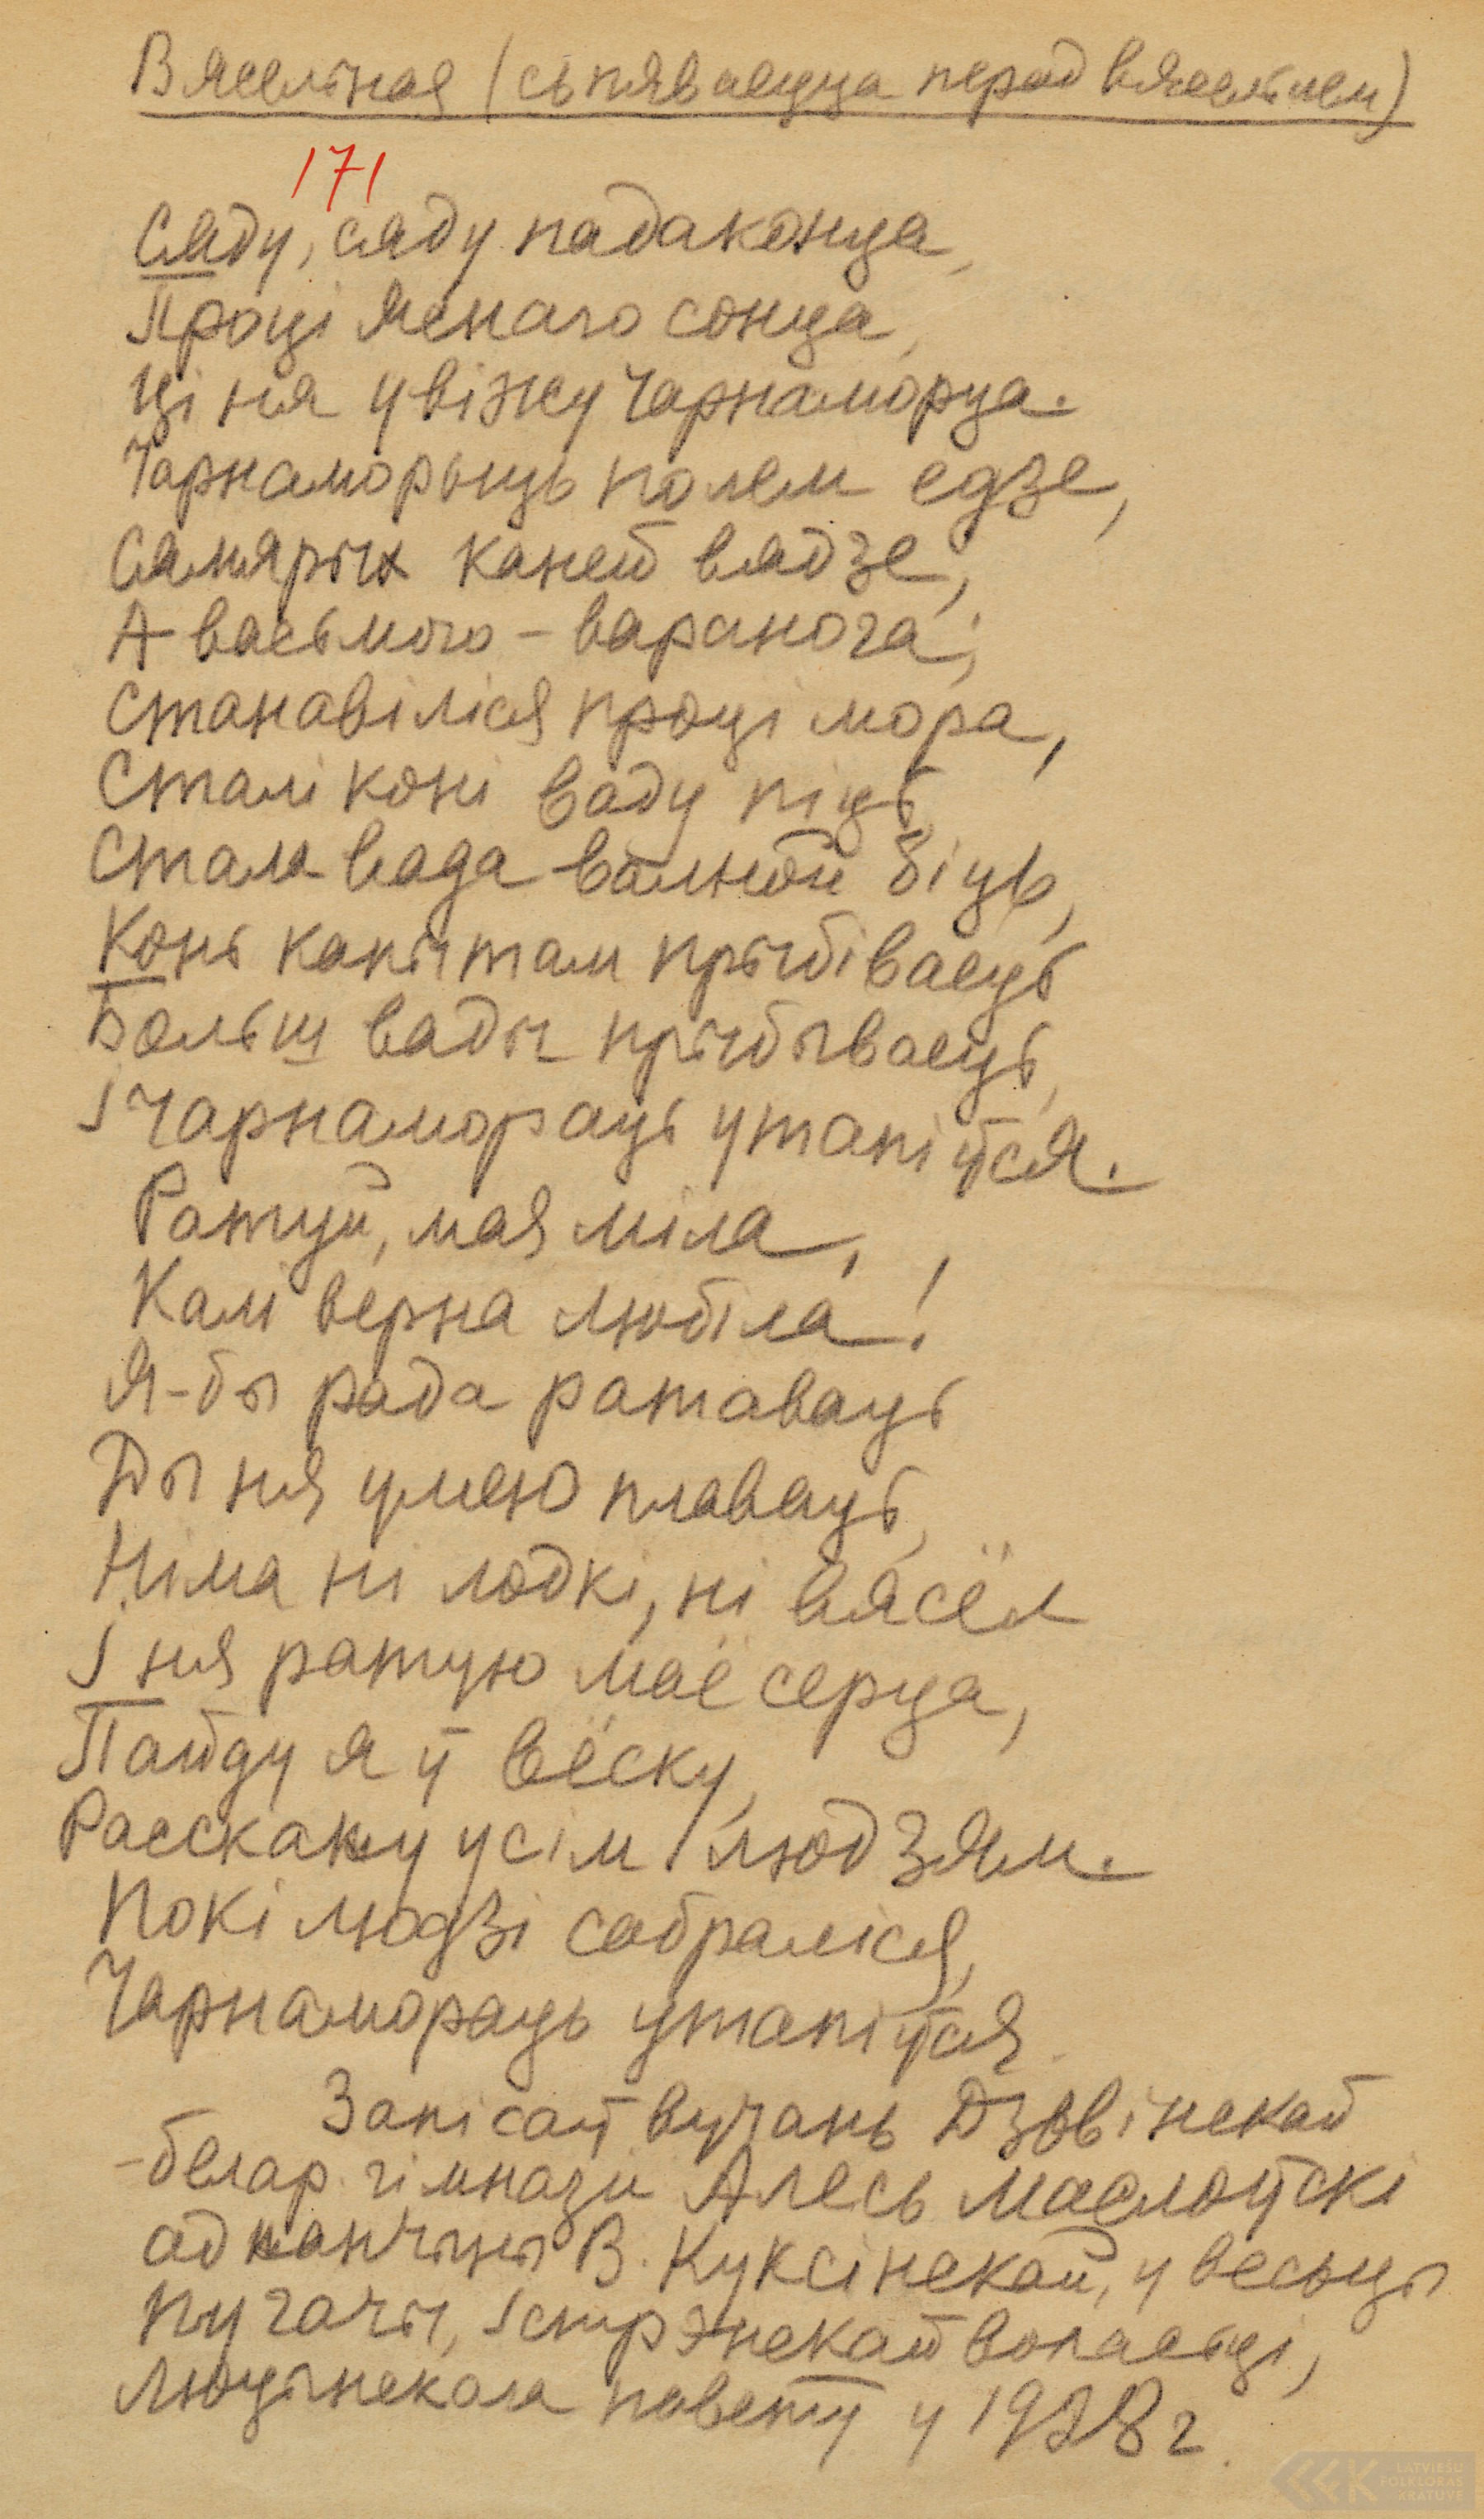 Вясельная (сьпяваецца перад вяселлем)
171
Сяду, сяду падаконца,
Проці яснаго сонца,
Ці ня увіжу Чарнаморца.
Чарнаморыць полем едзе,
Сямярых каней вядзе,
А васьмого – вараного,
Станавіліся проці мора,
Сталі коні ваду піць,
Стала вада валной біць,
Конь капытам прыбіваець
Больш вады прыбываець,
І Чарнамораць утапіўся.
Ратуй, мая міла,
Калі верна любіла!
Я-бы рада ратаваць
Ды ня умею плаваць,
Німа ні лодкі, ні вясёл
І ня ратую маё серца,
Пайду я ў вёску,
Расскажу усім людзям.
Покі людзі сабраліся,
Чарнамораць утапіўся.
Запісаў вучань Дзьвінскай
белар. гімназіі Алесь Маслоўскі
ад жанчыны В. Куксінскай, у весьцы
Пугачы, Істрэнскай воласьці,
Люцынскага павету у 1928 г.
LATVIEŠU
FOLKLORAS
KRĀTUVE